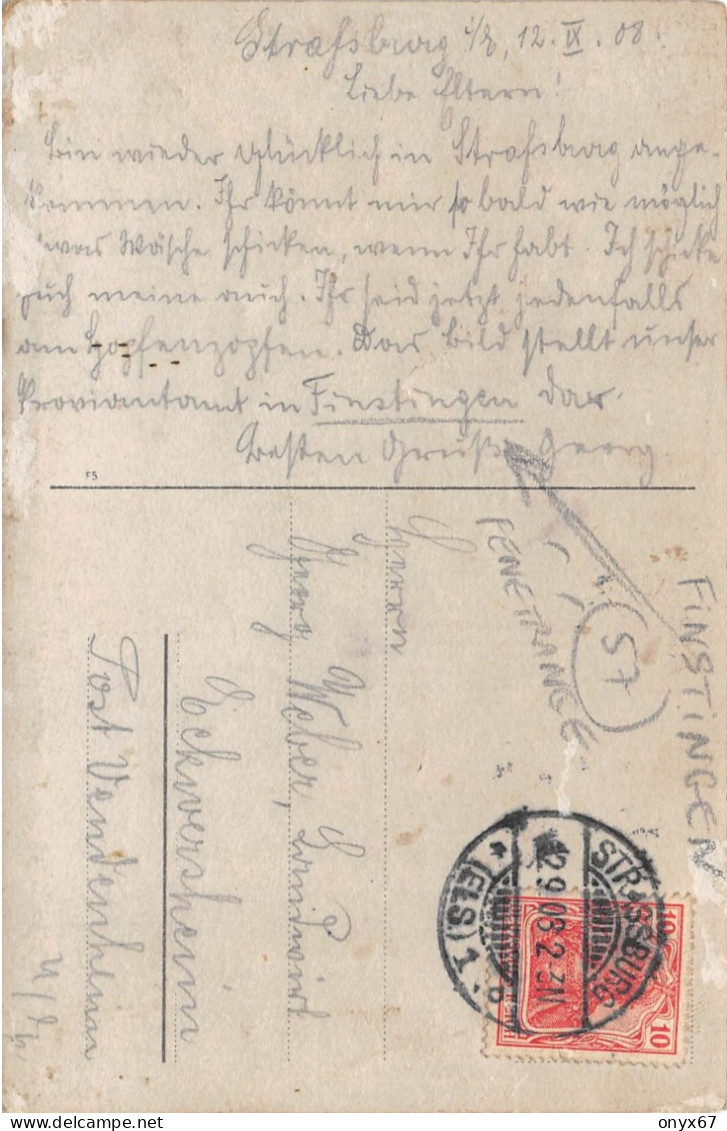 Straßburg i/E, 12. IX. 08.
Liebe Eltern!
Bin wieder glücklich in Straßburg ange-
kommen. Ihr könnt mir so bald wie möglich
was Wäsche schicken, wenn Ihr habt. Ich schicke
Euch meine auch. Ihr seid jetzt jedenfalls
am Hopfenzopfen. Das Bild stellt unser
Proviantamt in Finstingen dar.
Besten Gruß Georg
F5
Herrn
Georg Weber, Landwirt
Eckwersheim
Post Vendenheim
FENETRANGE
57
FINSTINGEN
STRASSBURG
12.9.08.2-3N
* (ELS.) 1.
10 10
delcampe.net
onyx67